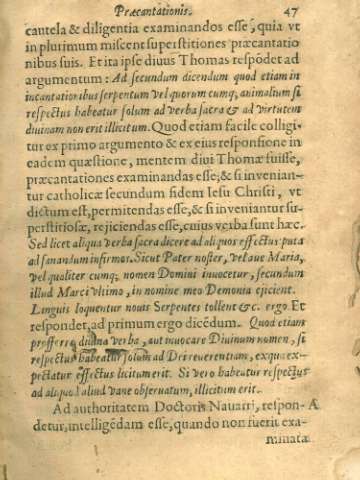 Præcantationis. 47
cautela & diligentia examinandos esse, quia vt
in plurimum miscent superstitiones præcantatio
nibus suis. Et ita ipse diuus Thomas respōdet ad
argumentum: Ad secundum dicendum quod etiam in
incantationibus serpentum vel quorum cumq; animalium si
respectus habeatur solum ad verba sacra & ad virtutem
diuinam non erit illicitum. Quod etiam facile colligi-
tur ex primo argumento & ex eius responsione in
eadem quæstione, mentem diui Thomæ fuisse,
præcantationes examinandas esse; & si inuenian-
tur catholicæ secundum fidem Iesu Christi, vt
dictum est, permitendas esse, & si inueniantur su-
perstitiosæ, rejiciendas esse, cuius verba sunt hæc.
Sed licet aliqua verba sacra dicere ad aliquos effectus puta
ad sanandum infirmos. Sicut Pater noster, vel aue Maria,
vel qualiter cumq; nomen Domini inuocetur, secundum
illud Marci vltimo, in nomine meo Demonia ejicient.
Linguis loquentur nouis Serpentes tollent &c. ergo. Et
respondet, ad primum ergo dicēdum. Quod etiam
profferre diuina verba, aut inuocare Diuinum nomen, si
respectus habeatur solum ad Dei reuerentiam, ex qua ex-
pectatur effectus licitum erit. Si vero habeatur respectus
ad aliquod aliud vane obseruatum, illicitum erit.
Ad authoritatem Doctoris Nauarri, respon-
detur, intelligēdam esse, quando non fuerit exa-
minatæ